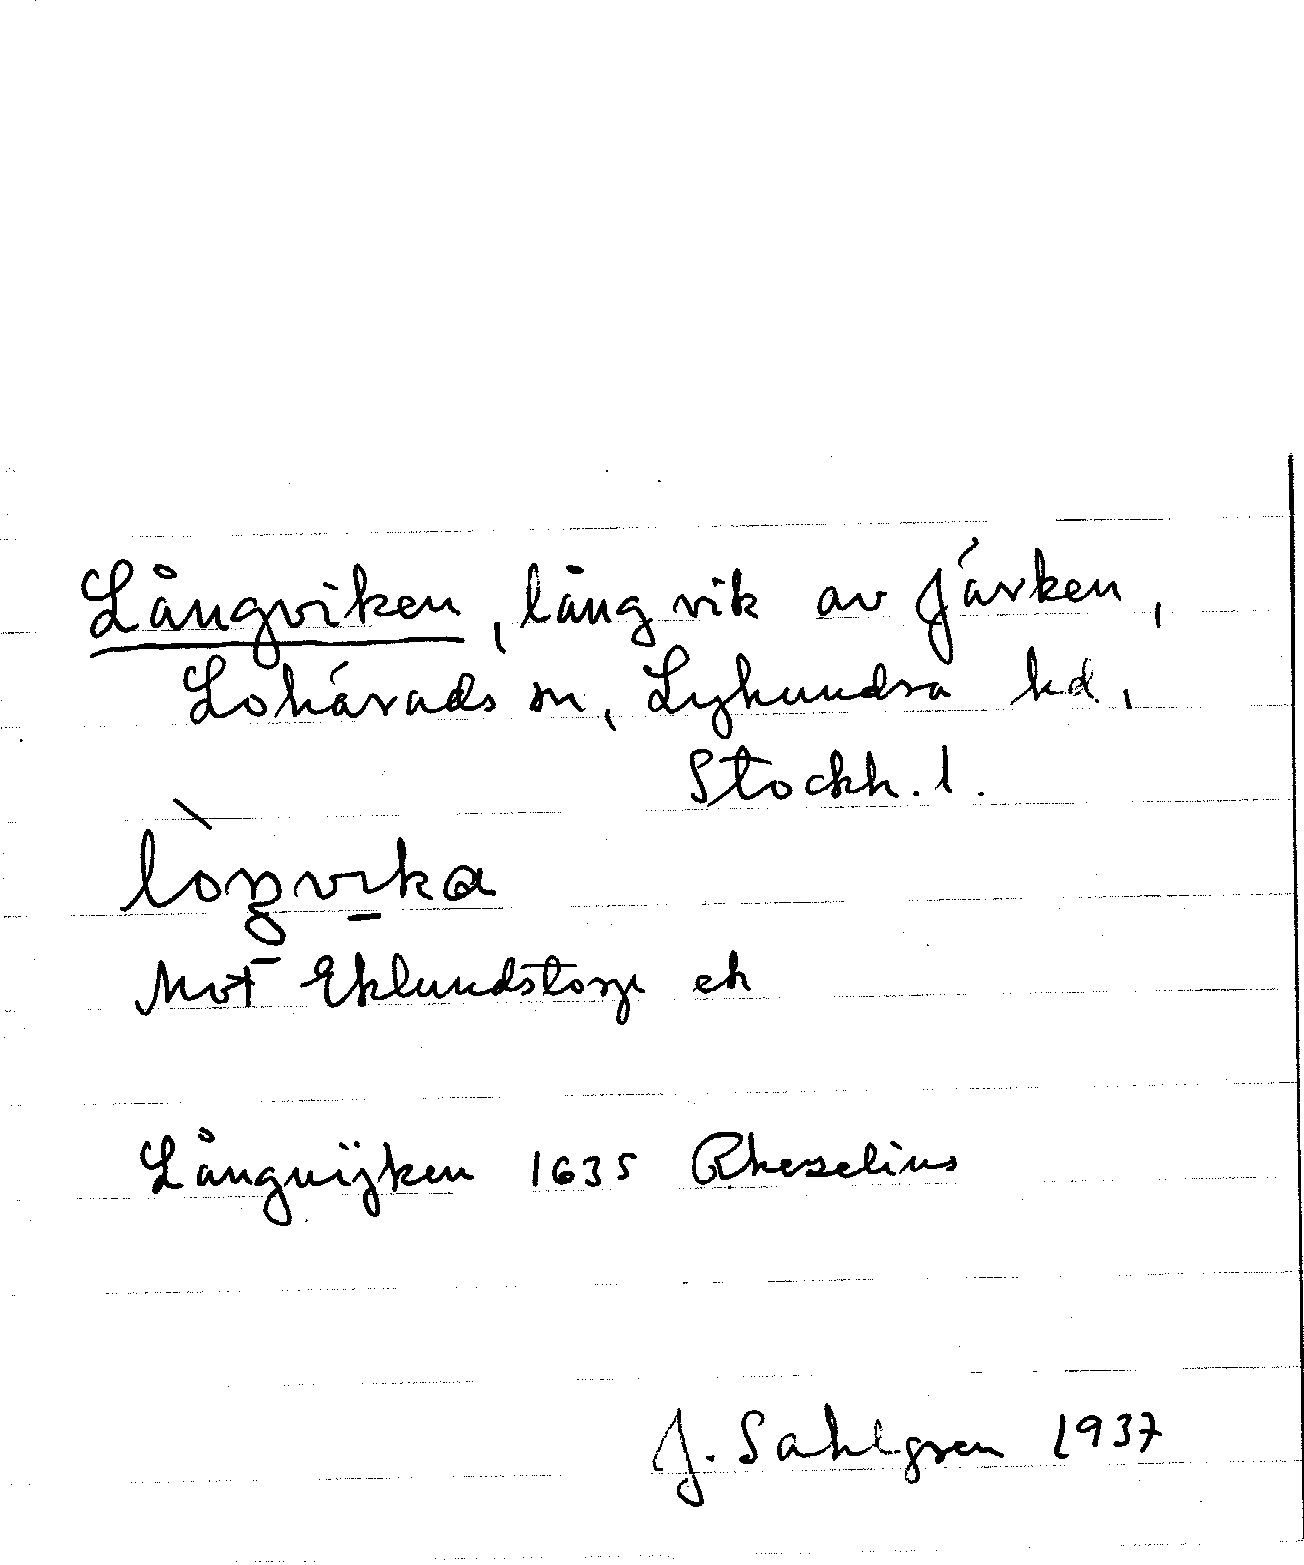 Långviken, lång vik av Järken,
Lohärads sn, Lyhundra hd,
Stockh. l.
lòŋvika
Mot Eklundstorp ek
Långvijken 1635 Rhezelius
J. Sahlgren 1937